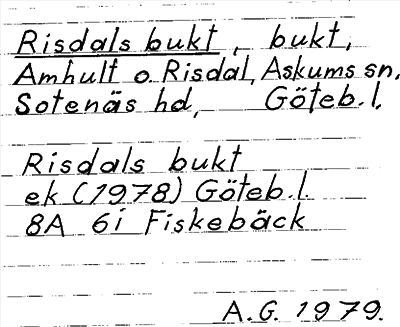 Risdals bukt, bukt,
Amhult o. Risdal, Askums sn,
Sotenäs hd, Göteb. l.
Risdals bukt
ek (1978) Göteb. l.
8A 6i Fiskebäck
A.G. 1979.